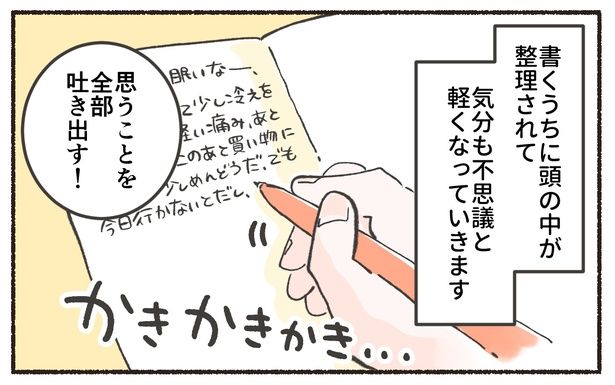 書くうちに頭の中が
整理されて
気分も不思議と
軽くなっていきます
思うことを
全部
吐き出す！
眠いなー、
て少し冷えを
軽い痛み、あと
このあと買い物に
少しめんどうだ。でも
今日行かないとだし、
かきかきかき…